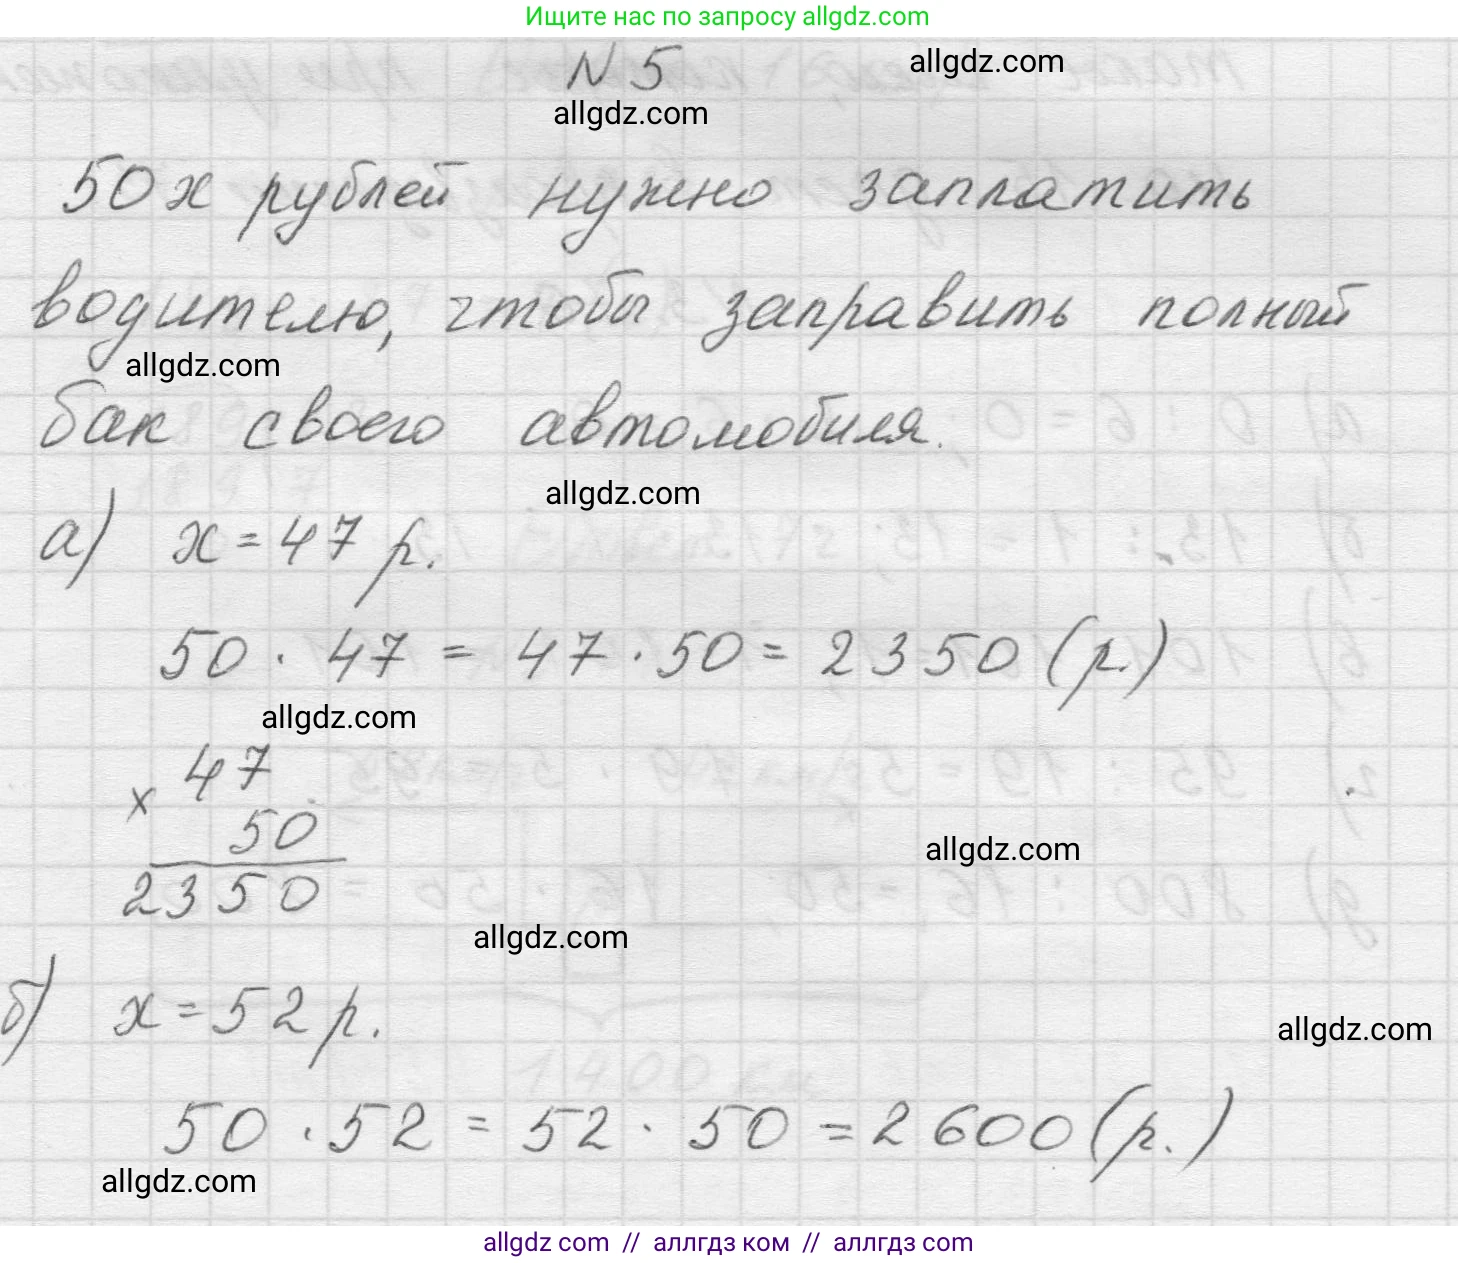 Ищите нас по запросу allgdz.com
N 5
allgdz.com
allgdz.com
50x рублей нужно заплатить
водителю, чтобы заправить полный
allgdz.com
бак своего автомобиля.
allgdz.com
а) x = 47 р.
50 · 47 = 47 · 50 = 2350 (р.)
allgdz.com
× 47
50
allgdz.com
2350
allgdz.com
б) x = 52 р.
allgdz.com
50 · 52 = 52 · 50 = 2600 (р.)
allgdz.com
allgdz com // аллгдз ком // аллгдз com